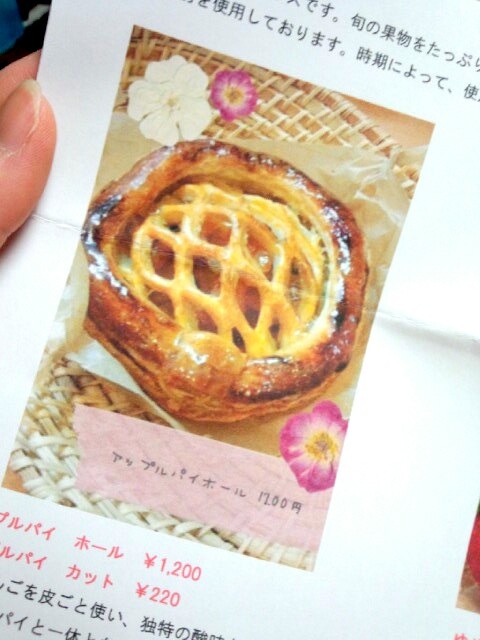 スです。旬の果物をたっぷり
を使用しております。時期によって、使
アップルパイホール 1200円
プルパイ ホール ¥1,200
ルパイ カット ¥220
ごを皮ごと使い、独特の酸味
パイと一体と